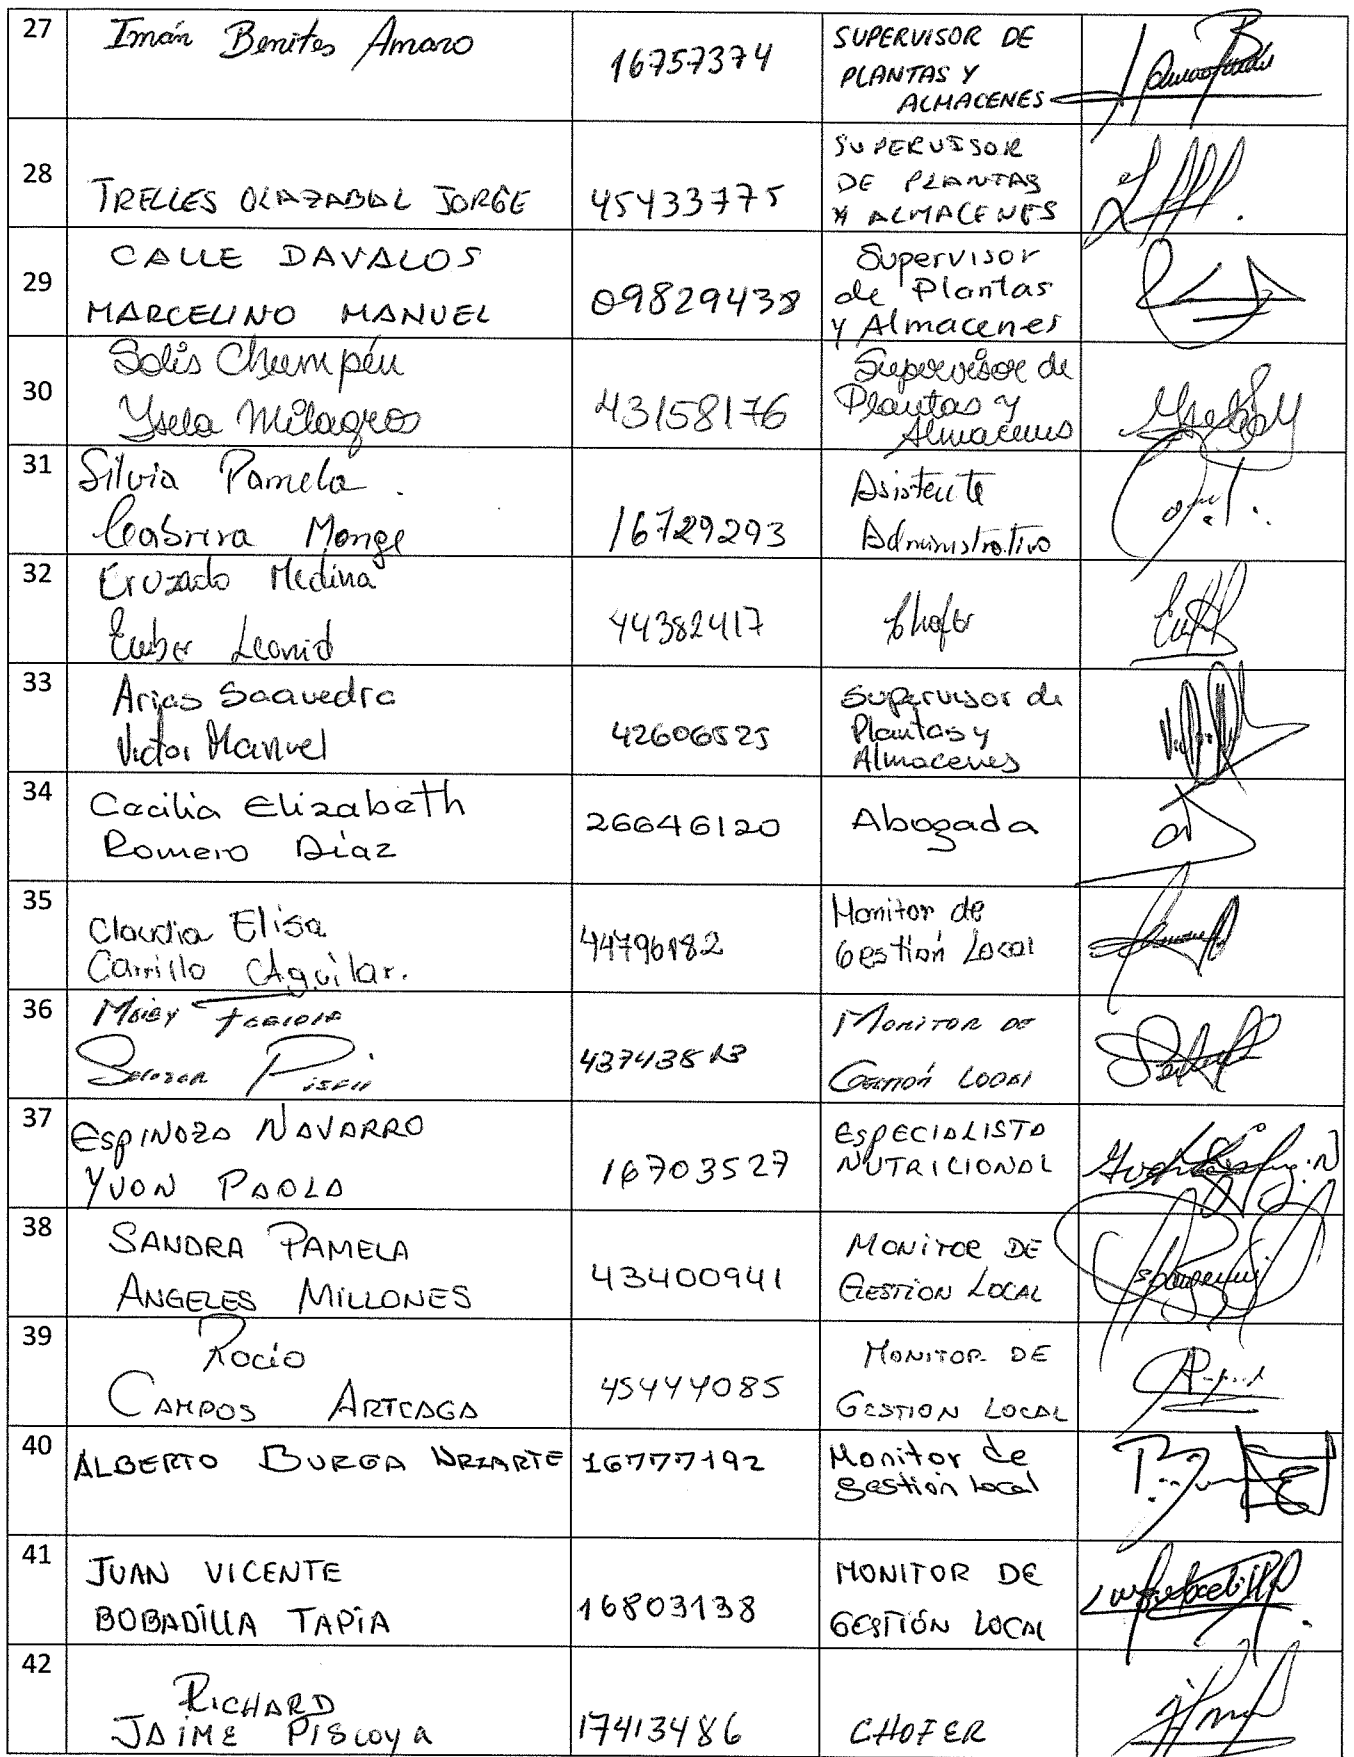 27
Imán Benites Amaro
16757374
SUPERVISOR DE
PLANTAS Y
ALMACENES
28
TRELLES OLAZABAL JORGE
45433775
SUPERVISOR
DE PLANTAS
Y ALMACENES
29
CALLE DAVALOS
MARCELINO MANUEL
09829438
Supervisor
de Plantas
y Almacenes
30
Solis Chumpén
Ysela Milagros
43158176
Supervisor de
Plantas y
Almacenes
31
Silvia Pamela.
Cabrera Monge
16729293
Asistente
Administrativo
32
Cruzado Medina
Euber Leonid
44382417
Chofer
33
Arias Saavedra
Victor Manuel
42606525
Supervisor de
Plantas y
Almacenes
34
Cecilia Elizabeth
Romero Díaz
26646120
Abogada
35
Claudia Elisa
Carrillo Aguilar.
44796182
Monitor de
Gestión Local
36
Salazar
Monitor de
Gestión Local
37
ESPINOZA NAVARRO
YVON PAOLA
16703527
ESPECIALISTA
NUTRICIONAL
38
SANDRA PAMELA
ANGELES MILLONES
43400941
MONITOR DE
GESTION LOCAL
39
Rocío
CAMPOS ARTEAGA
45444085
MONITOR DE
GESTION LOCAL
40
ALBERTO BURGA URIARTE
16777192
Monitor de
gestión local
41
JUAN VICENTE
BOBADILLA TAPIA
16803138
MONITOR DE
GESTIÓN LOCAL
42
RICHARD
JAIME PISCOYA
17413486
CHOFER